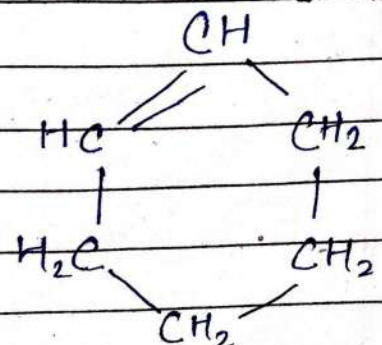 CH
HC CH2
H2C CH2
CH2